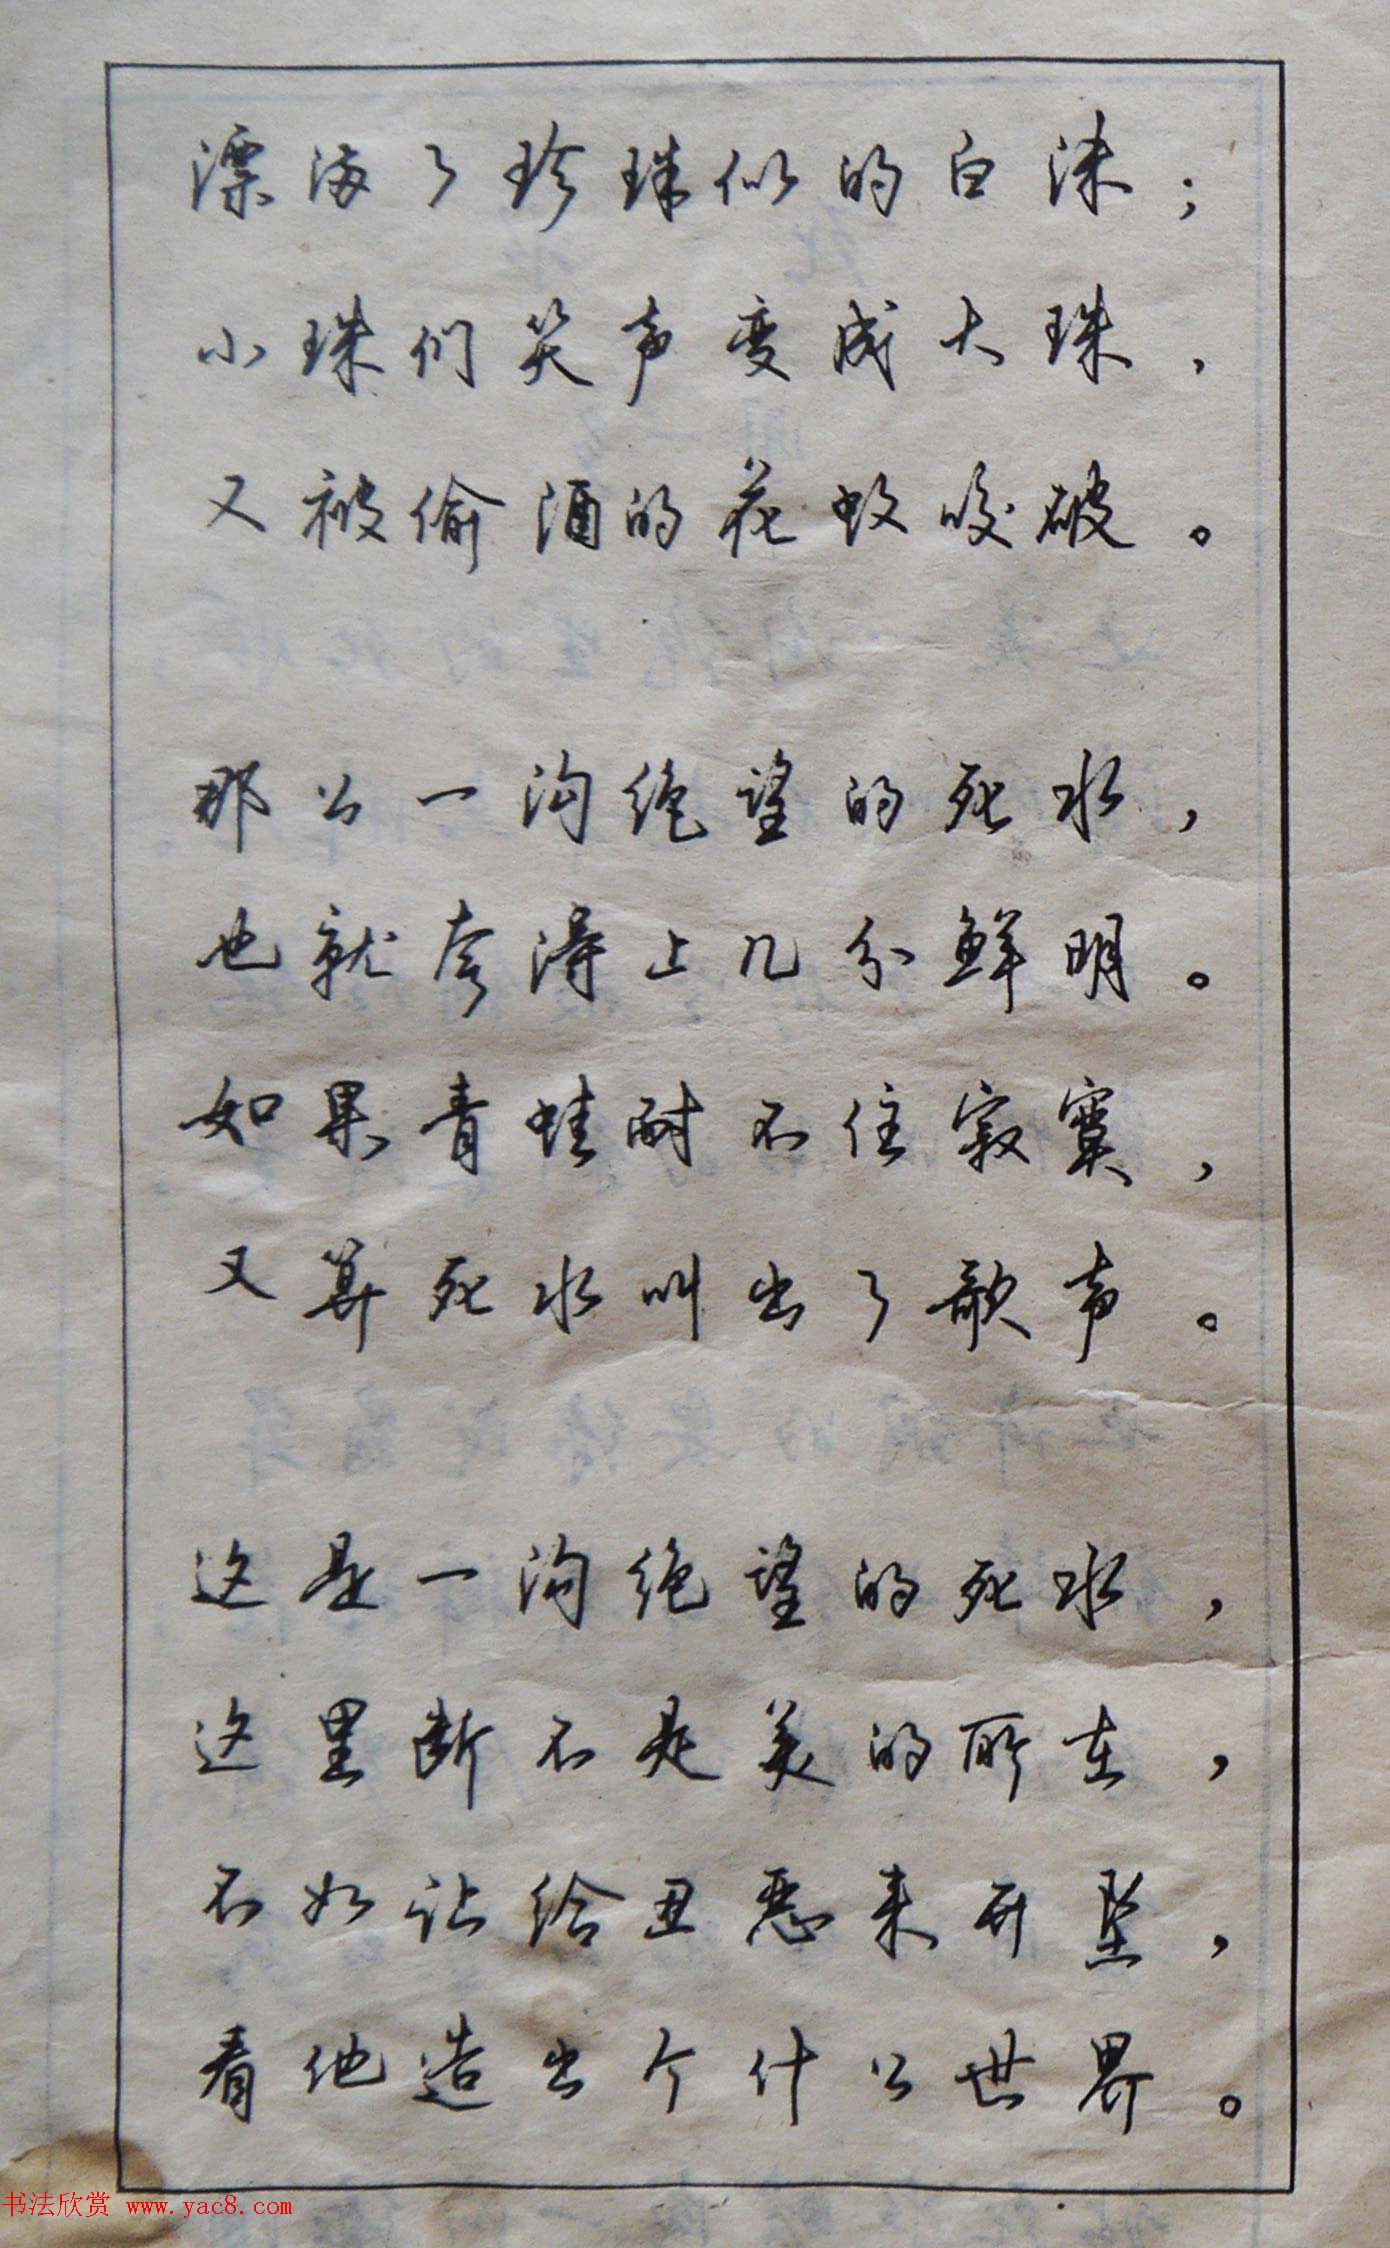 漂满了珍珠似的白沫；
小珠们笑声变成大珠，
又被偷酒的花蚊咬破。
那么一沟绝望的死水，
也就夸得上几分鲜明。
如果青蛙耐不住寂寞，
又算死水叫出了歌声。
这是一沟绝望的死水，
这里断不是美的所在，
不如让给丑恶来开垦，
看他造出个什么世界。
书法欣赏 www.yac8.com